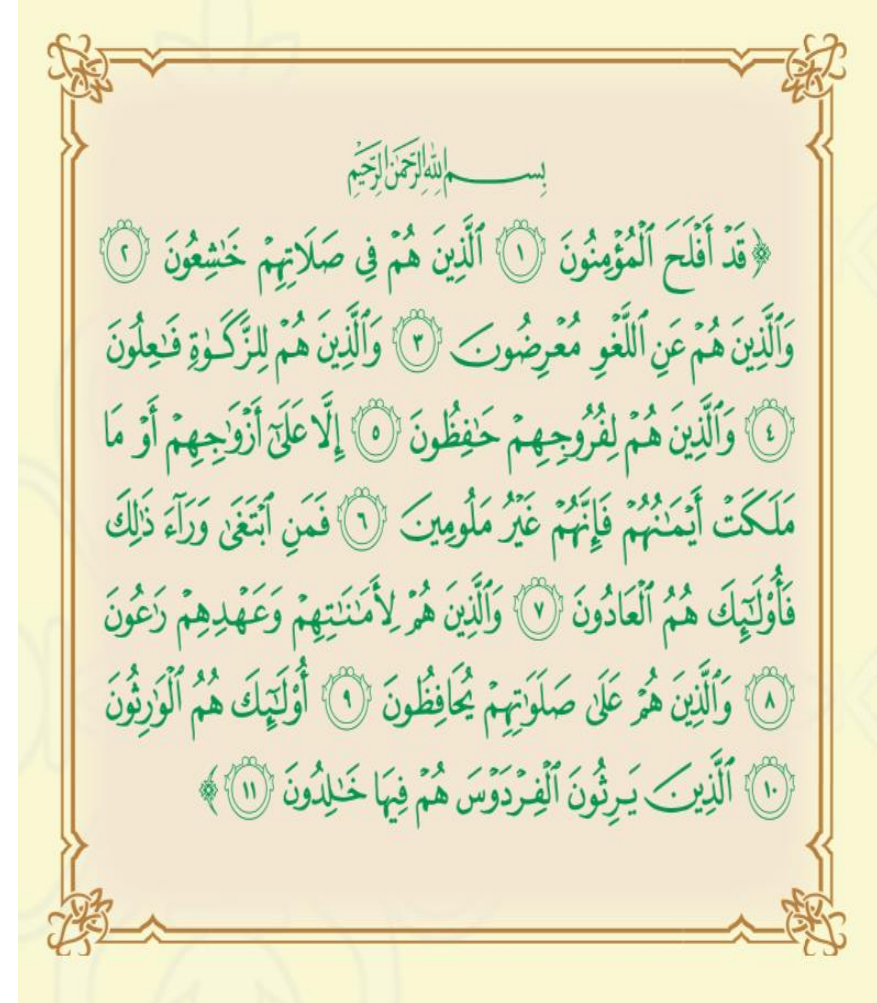 بِسْمِ اللَّهِ الرَّحْمَٰنِ الرَّحِيمِ
﴿قَدْ أَفْلَحَ ٱلْمُؤْمِنُونَ ١ ٱلَّذِينَ هُمْ فِي صَلَاتِهِمْ خَٰشِعُونَ ٢
وَٱلَّذِينَ هُمْ عَنِ ٱللَّغْوِ مُعْرِضُونَ ٣ وَٱلَّذِينَ هُمْ لِلزَّكَوٰةِ فَٰعِلُونَ
٤ وَٱلَّذِينَ هُمْ لِفُرُوجِهِمْ حَٰفِظُونَ ٥ إِلَّا عَلَىٰٓ أَزْوَٰجِهِمْ أَوْ مَا
مَلَكَتْ أَيْمَٰنُهُمْ فَإِنَّهُمْ غَيْرُ مَلُومِينَ ٦ فَمَنِ ٱبْتَغَىٰ وَرَآءَ ذَٰلِكَ
فَأُوْلَٰٓئِكَ هُمُ ٱلْعَادُونَ ٧ وَٱلَّذِينَ هُمْ لِأَمَٰنَٰتِهِمْ وَعَهْدِهِمْ رَٰعُونَ
٨ وَٱلَّذِينَ هُمْ عَلَىٰ صَلَوَٰتِهِمْ يُحَافِظُونَ ٩ أُوْلَٰٓئِكَ هُمُ ٱلْوَٰرِثُونَ
١٠ ٱلَّذِينَ يَرِثُونَ ٱلْفِرْدَوْسَ هُمْ فِيهَا خَٰلِدُونَ ١١﴾